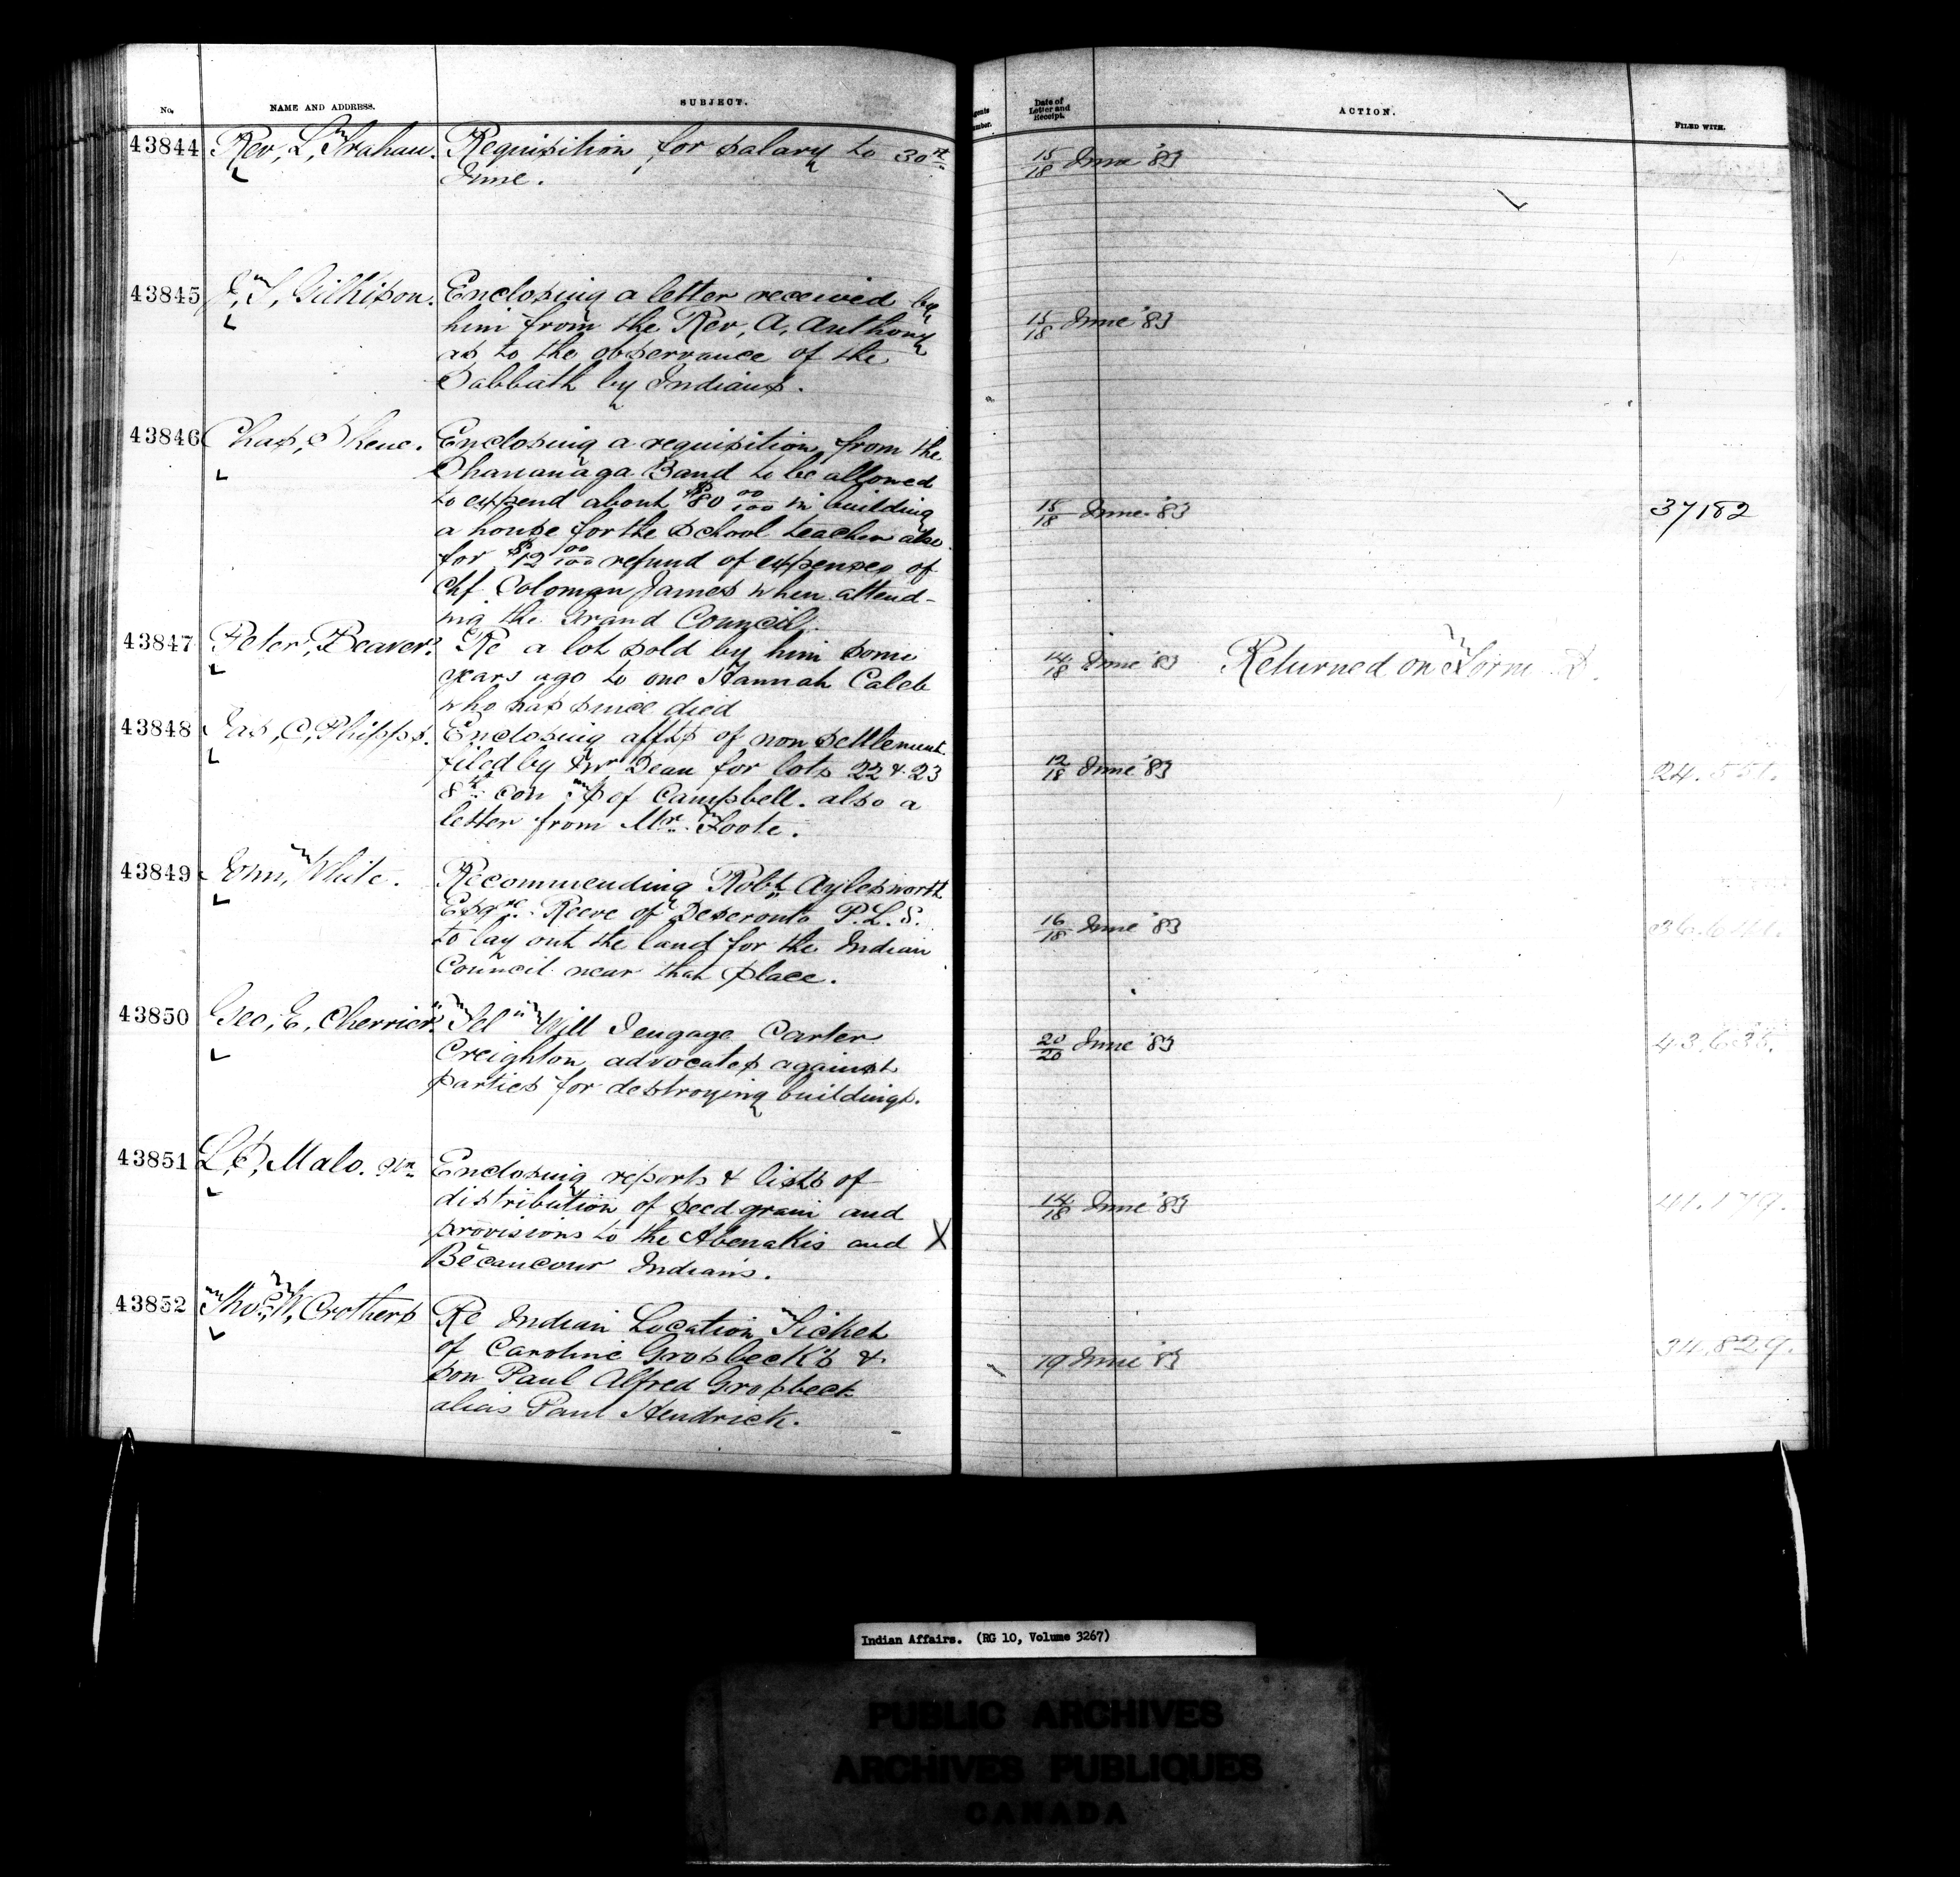 No. NAME AND ADDRESS. SUBJECT. Date of Letter and Receipt. ACTION. FILED WITH.
43844 Rev, L, Trahan. Requisition for salary to 30th 15/18 June '83
June.
43845 J, T, Gilkison. Enclosing a letter received by
him from the Rev, A, Anthony 15/18 June '83
as to the observance of the
Sabbath by Indians.
43846 Chas, Skene. Enclosing a requisition from the
Shawanaga Band to be allowed
to expend about $80 00/100 in building 15/18 June '83 37182
a house for the School teacher also
for $12 00/100 refund of expenses of
Chf Soloman James when attend-
ing the Grand Council.
43847 Peter, Beaver. Re a lot sold by him some 14/18 June '83 Returned on Form
years ago to one Hannah Caleb
who has since died
43848 Jas, C, Phipps. Enclosing affts of non settlement
filed by Dean for lots 22 & 23 12/18 June '83
8th con Tp of Campbell. also a
letter from Mr. Foote.
43849 John, White. Recommending Robt Aylesworth
Esqre. Reeve of Deseronto P.L.S. 16/18 June '83
to lay out the land for the Indian
Council near that place.
43850 Geo, E, Cherrier. Tel "Will I engage Carter 20/20 June '83 43,635.
Creighton, advocates against
parties for destroying buildings.
43851 L, P, Malo. Enclosing reports & lists of
distribution of seed grain and 14/18 June '83 41.179.
provisions to the Abenakis and X
Bécancour Indians.
43852 Thos, W, Crothers Re Indian Location Ticket
of Caroline Grosbeck's & 19 June '83 34,829.
son Paul Alfred Grosbeck
alias Paul Hendrick.
Indian Affairs. (RG 10, Volume 3267)
PUBLIC ARCHIVES
ARCHIVES PUBLIQUES
CANADA